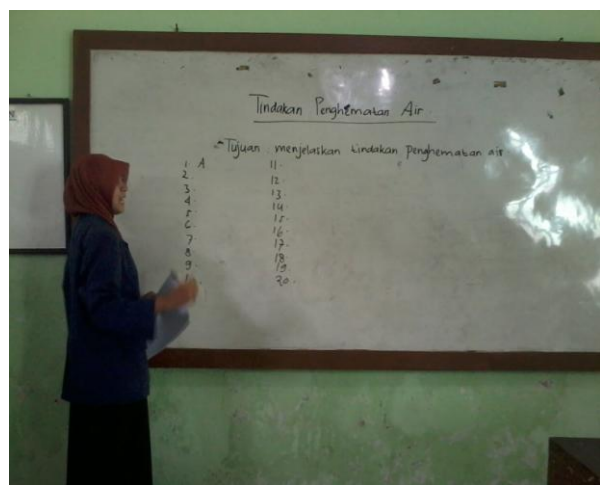 Tindakan Penghematan Air
- Tujuan : menjelaskan tindakan penghematan air
1. A
2.
3.
4.
5.
6.
7.
8.
9.
11.
12.
13.
14.
15.
16.
17.
18.
19.
20.